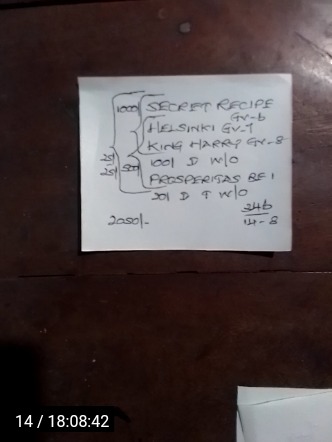 1000 SECRET RECIPE
GV-6
HELSINKI GV-7
KING HARRY GV-8
500 100/ D W/O
PROSPERITAS BE 1
20/ D T W/O
2050/-
346
14-8
14 / 18:08:42